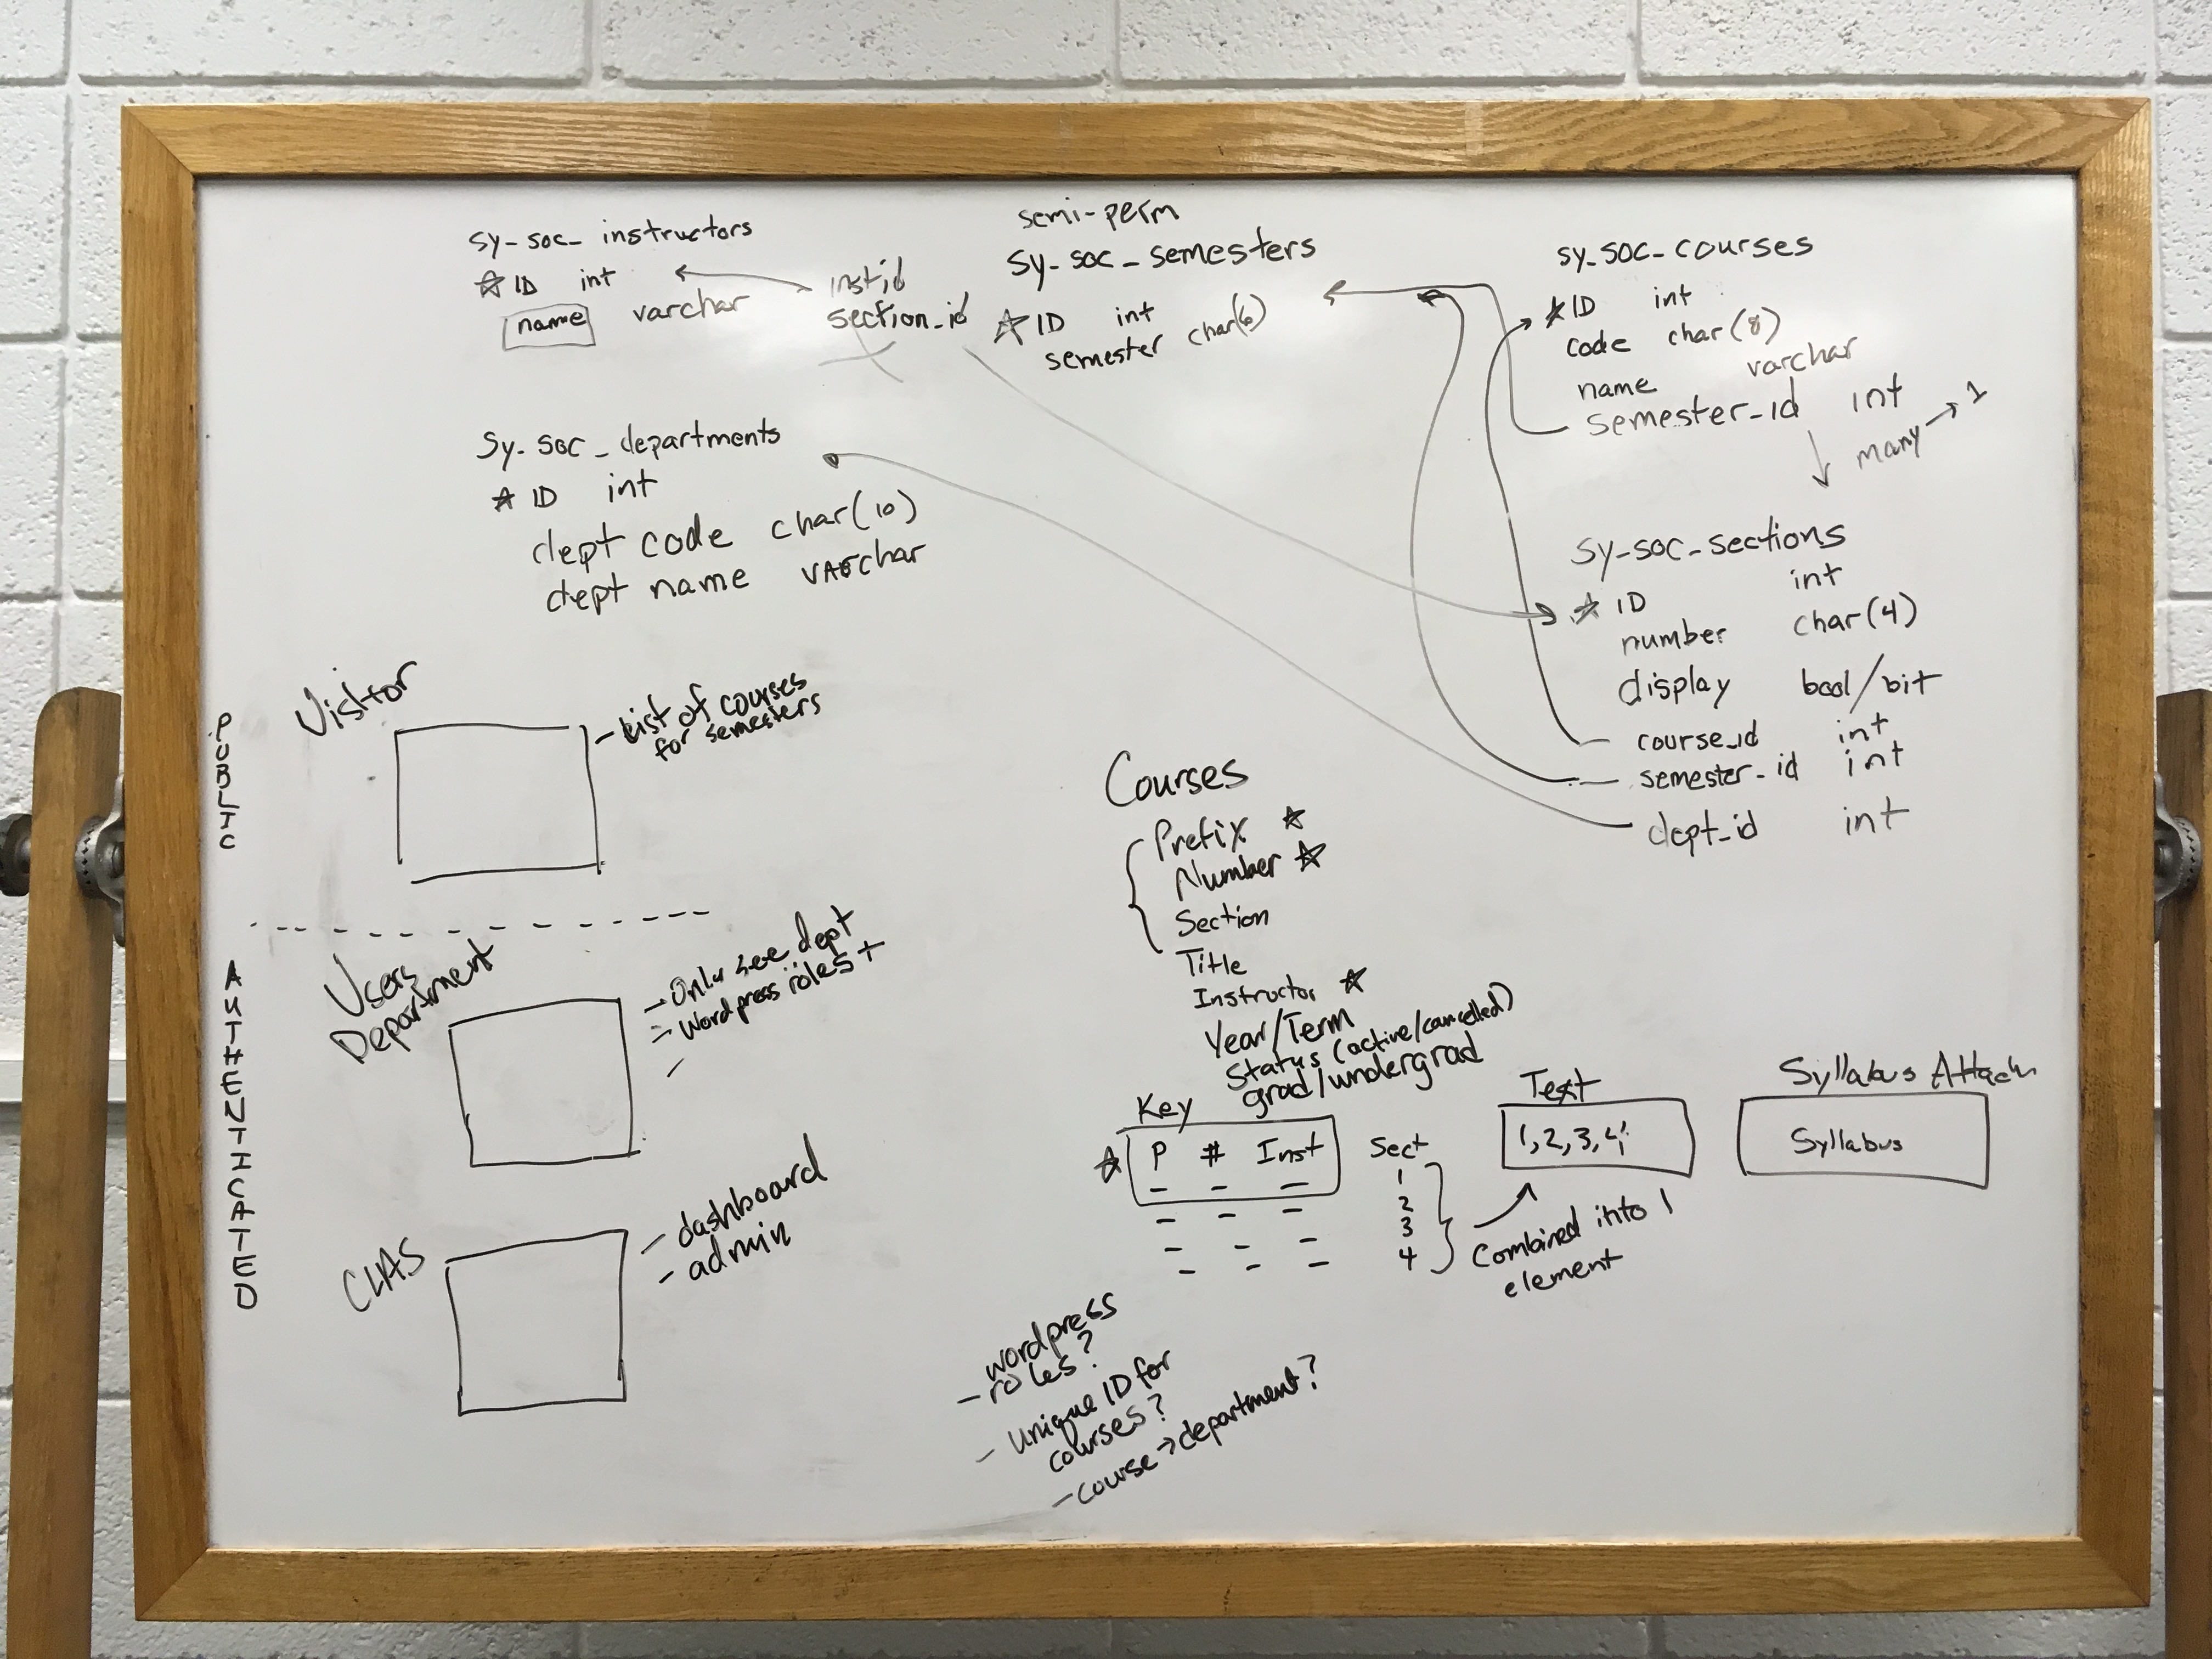 sy-soc- instructors
☆ ID int
name varchar
inst_id
section_id
semi-perm
sy-soc-semesters
☆ ID int
semester char(6)
sy-soc-courses
☆ ID int
code char(8)
name varchar
semester_id int
many → 1
sy-soc-departments
☆ ID int
dept code char(10)
dept name varchar
sy-soc-sections
☆ ID int
number char(4)
display bool/bit
course_id int
semester_id int
dept_id int
PUBLIC
Visitor
- List of courses
for semesters
AUTHENTICATED
Users
Department
- Only see dept
- Wordpress roles +
CLAS
- dashboard
- admin
Courses
Prefix ☆
Number ☆
Section
Title
Instructor ☆
Year/Term
Status (active/cancelled)
grad/undergrad
Key
☆ P # Inst
Sect
1
2
3
4
Text
1, 2, 3, 4
Combined into 1
element
Syllabus Attach
Syllabus
- wordpress
roles?
- unique ID for
courses?
- course → department?